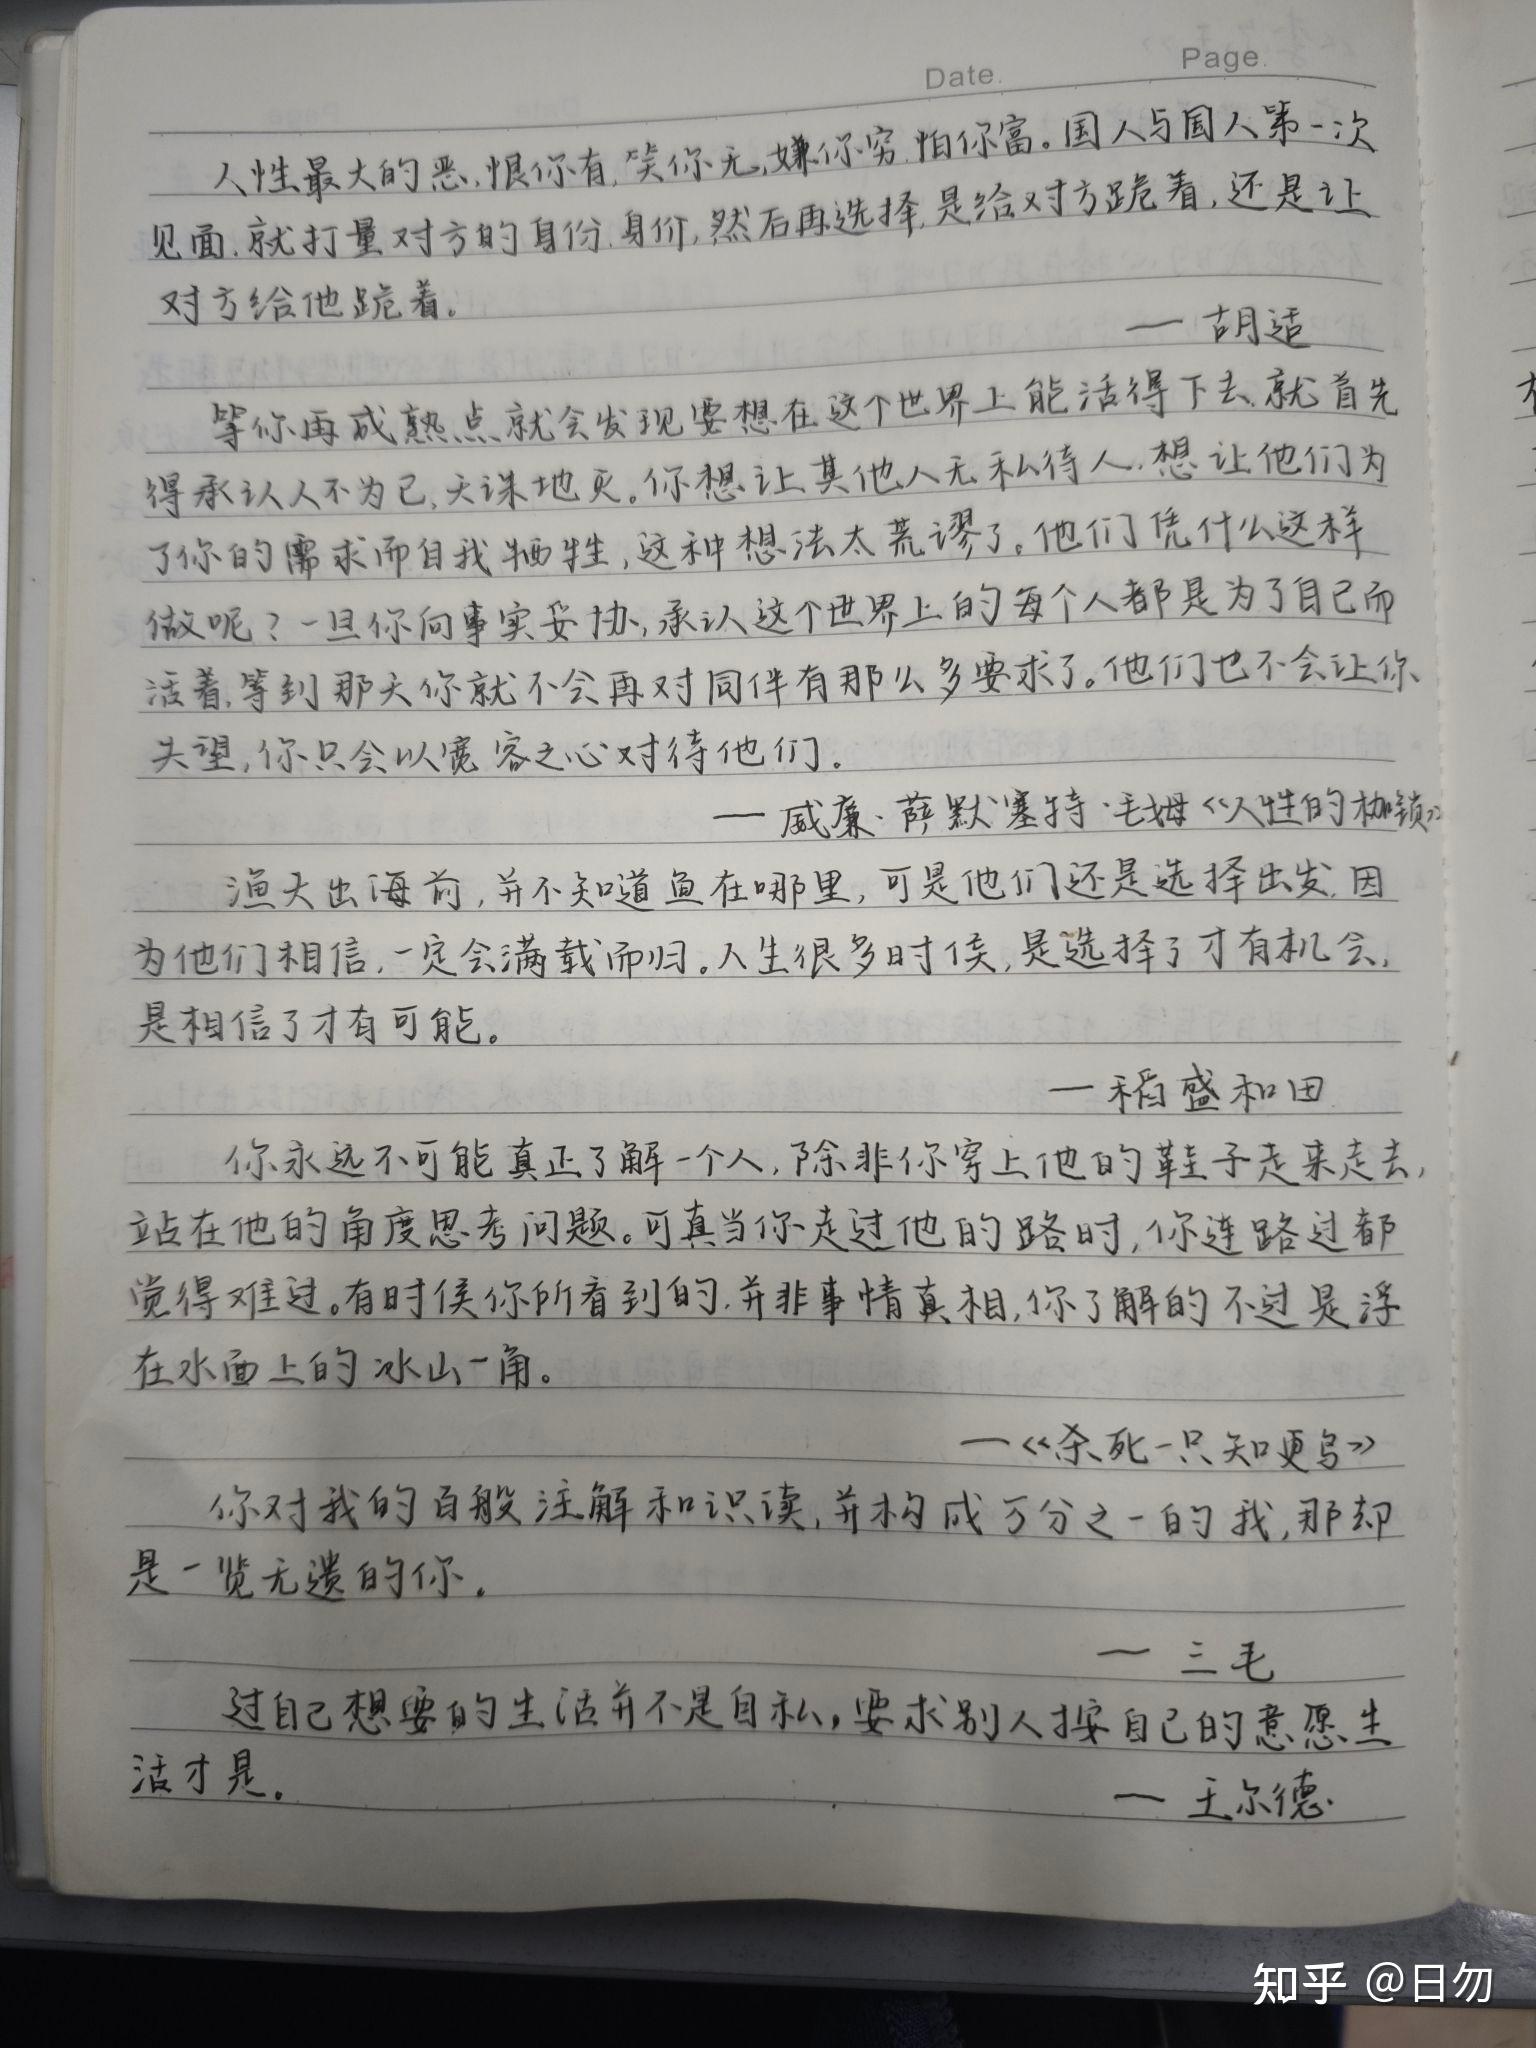 Date.
Page.
人性最大的恶,恨你有,笑你无,嫌你穷,怕你富。国人与国人第一次
见面,就打量对方的身份,身价,然后再选择,是给对方跪着,还是让
对方给他跪着。
— 胡适
等你再成熟点就会发现要想在这个世界上能活得下去,就首先
得承认人不为己,天诛地灭。你想让其他人无私待人,想让他们为
了你的需求而自我牺牲,这种想法太荒谬了。他们凭什么这样
做呢?一旦你向事实妥协,承认这个世界上的每个人都是为了自己而
活着,等到那天你就不会再对同伴有那么多要求了。他们也不会让你
失望,你只会以宽容之心对待他们.
— 威廉·萨默塞特·毛姆《人性的枷锁》
渔夫出海前,并不知道鱼在哪里,可是他们还是选择出发,因
为他们相信,一定会满载而归。人生很多时侯,是选择了才有机会,
是相信了才有可能。
— 稻盛和田
你永远不可能真正了解一个人,除非你穿上他的鞋子走来走去,
站在他的角度思考问题。可真当你走过他的路时,你连路过都
觉得难过。有时侯你所看到的,并非事情真相,你了解的不过是浮
在水面上的冰山一角。
—《杀死一只知更鸟》
你对我的百般注解和识读,并构成万分之一的我,那却
是一览无遗的你.
— 三毛
过自己想要的生活并不是自私,要求别人按自己的意愿生
活才是。
— 王尔德.
知乎 @日勿